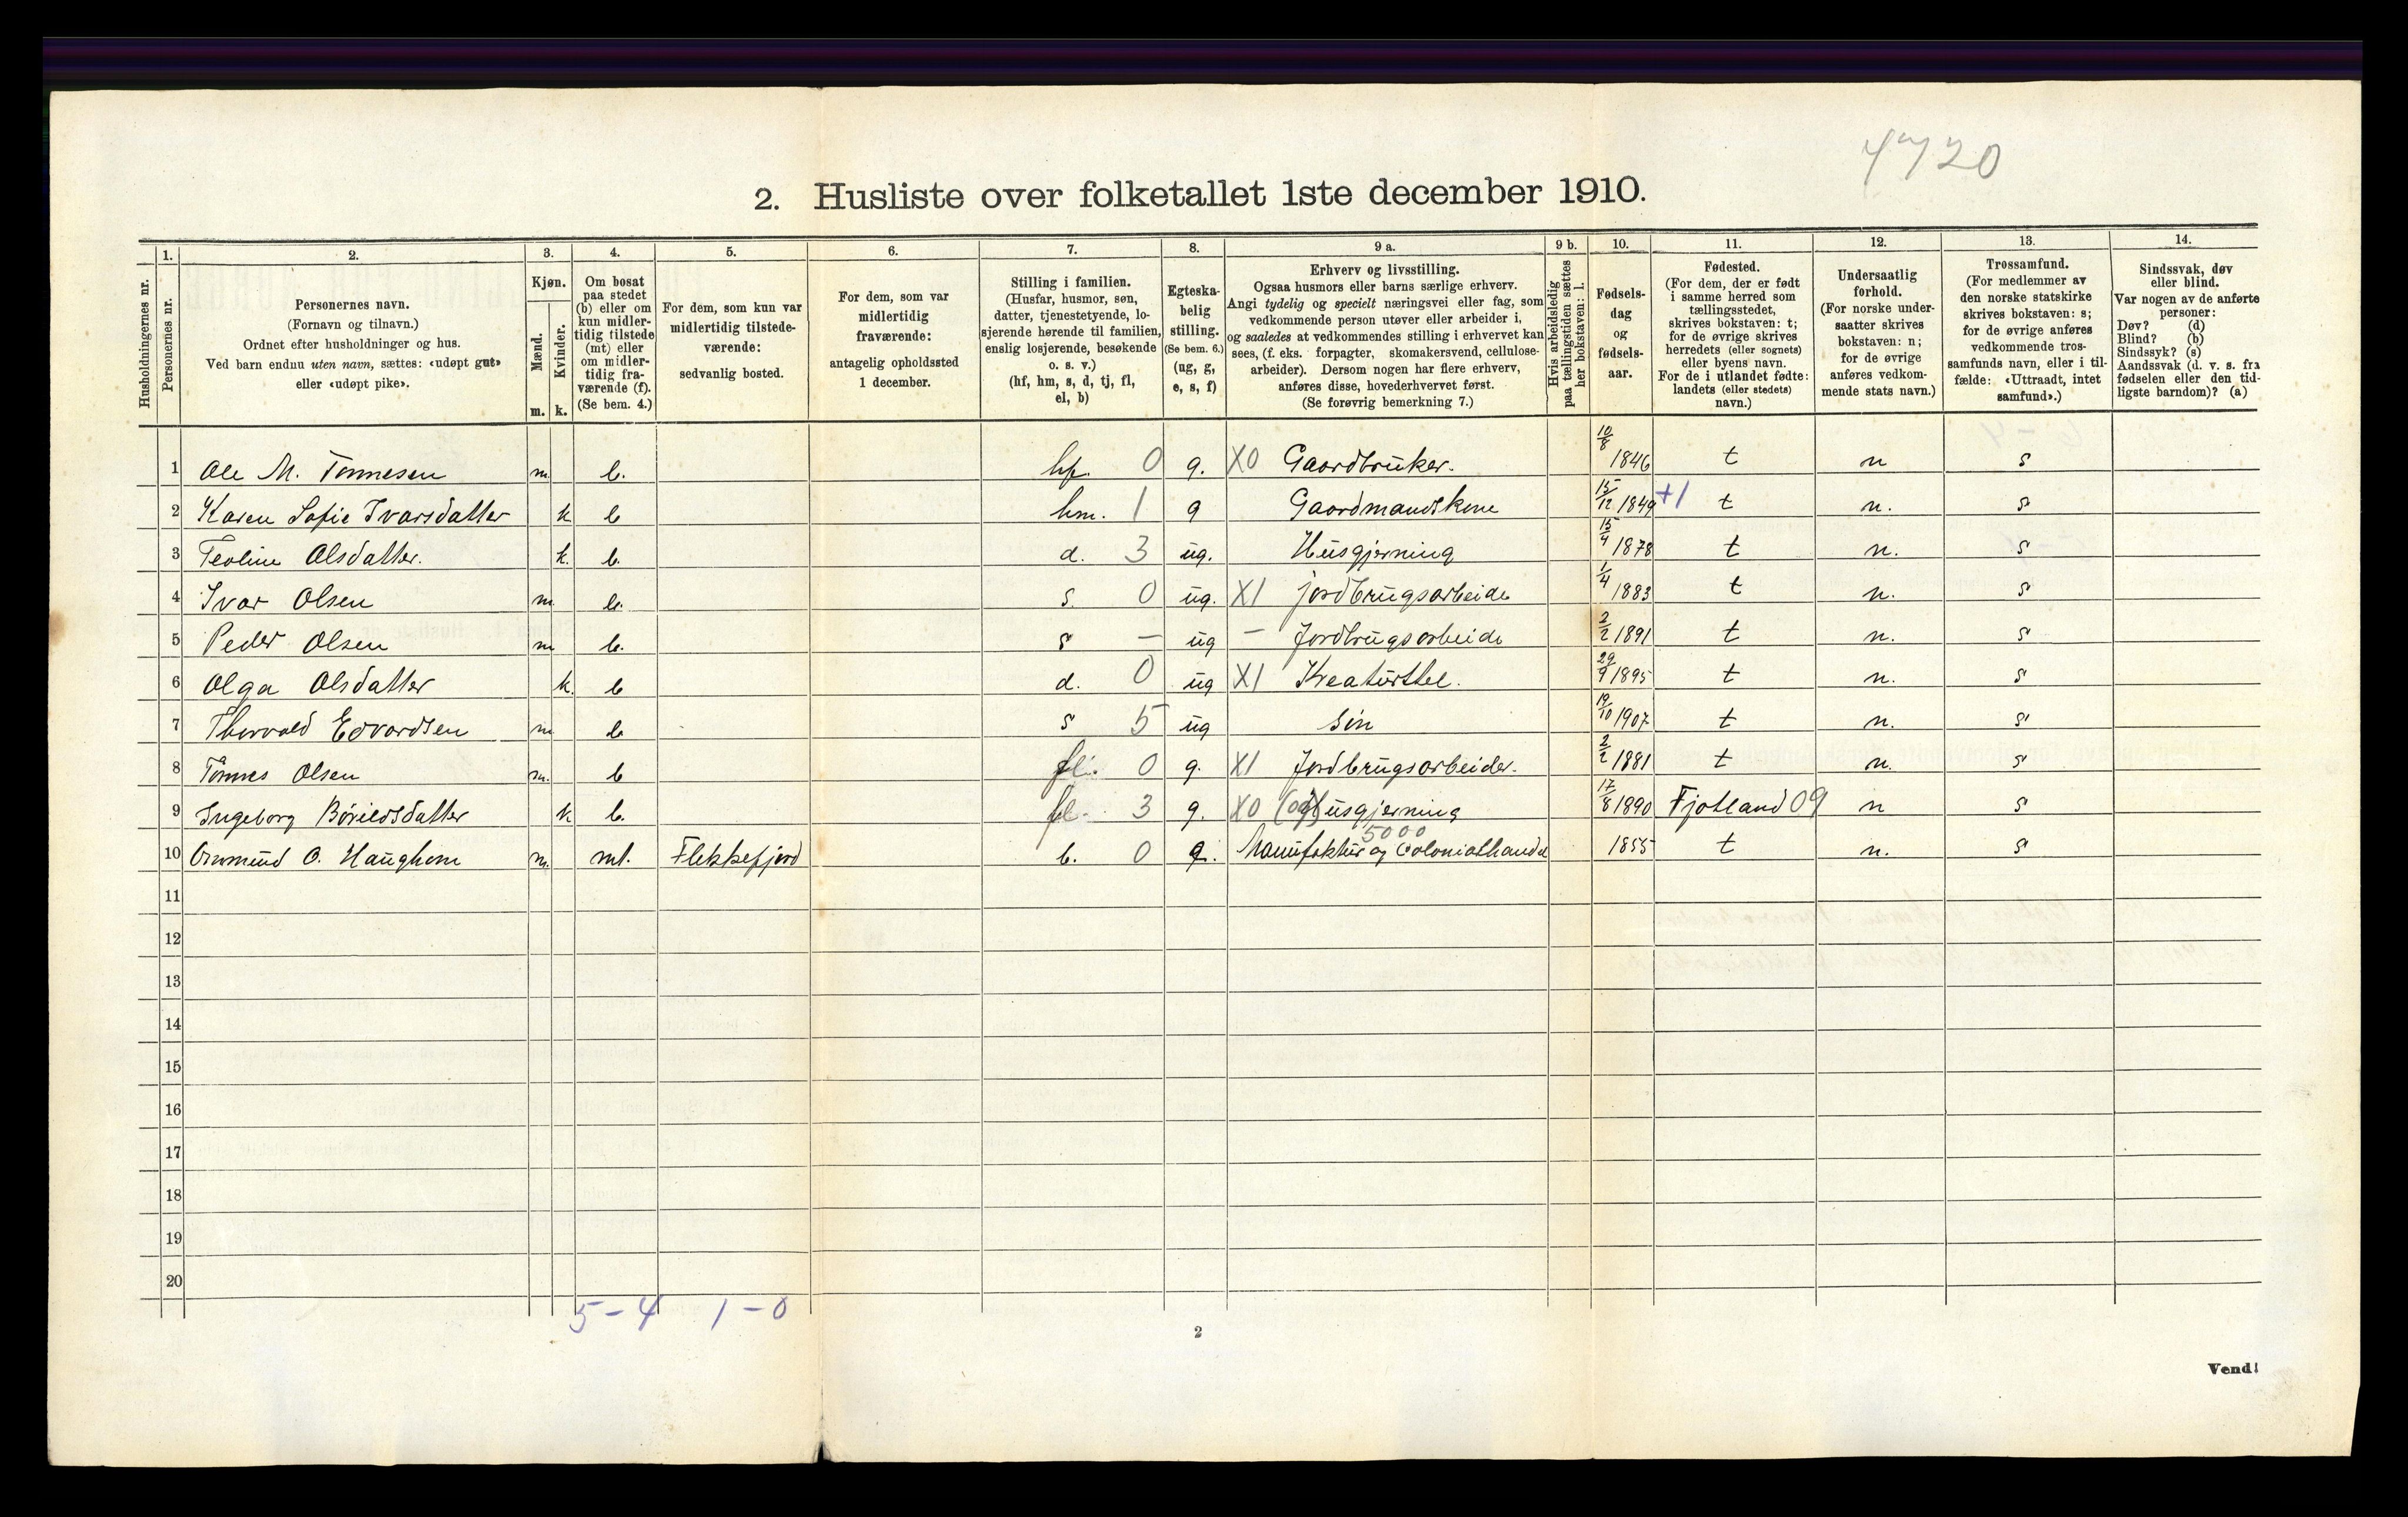 4720
2. Husliste over folketallet 1ste december 1910.
Husholdningernes nr.
1.
Personernes nr.
2.
Personernes navn.
(Fornavn og tilnavn.)
Ordnet efter husholdninger og hus.
Ved barn endnu uten navn, sættes: «udøpt gut»
eller «udøpt pike».
3.
Kjøn.
Mænd.
Kvinder.
m. k.
4.
Om bosat
paa stedet
(b) eller om
kun midler-
tidig tilstede
(mt) eller
om midler-
tidig fra-
værende (f).
(Se bem. 4.)
5.
For dem, som kun var
midlertidig tilstede-
værende:
sedvanlig bosted.
6.
For dem, som var
midlertidig
fraværende:
antagelig opholdssted
1 december.
7.
Stilling i familien.
(Husfar, husmor, søn,
datter, tjenestetyende, lo-
sjerende hørende til familien,
enslig losjerende, besøkende
o. s. v.)
(hf, hm, s, d, tj, fl,
el, b)
8.
Egteska-
belig
stilling.
(Se bem. 6.)
(ug, g,
e, s, f)
9 a.
Erhverv og livsstilling.
Ogsaa husmors eller barns særlige erhverv.
Angi tydelig og specielt næringsvei eller fag, som
vedkommende person utøver eller arbeider i,
og saaledes at vedkommendes stilling i erhvervet kan
sees, (f. eks. forpagter, skomakersvend, cellulose-
arbeider). Dersom nogen har flere erhverv,
anføres disse, hovederhvervet først.
(Se forøvrig bemerkning 7.)
9 b.
Hvis arbeidsledig
paa tællingstiden sættes
her bokstaven: l.
10.
Fødsels-
dag
og
fødsels-
aar.
11.
Fødested.
(For dem, der er født
i samme herred som
tællingsstedet,
skrives bokstaven: t;
for de øvrige skrives
herredets (eller sognets)
eller byens navn.
For de i utlandet fødte:
landets (eller stedets)
navn.)
12.
Undersaatlig
forhold.
(For norske under-
saatter skrives
bokstaven: n;
for de øvrige
anføres vedkom-
mende stats navn.)
13.
Trossamfund.
(For medlemmer av
den norske statskirke
skrives bokstaven: s;
for de øvrige anføres
vedkommende tros-
samfunds navn, eller i til-
fælde: «Uttraadt, intet
samfund».)
14.
Sindssvak, døv
eller blind.
Var nogen av de anførte
personer:
Døv? (d)
Blind? (b)
Sindssyk? (s)
Aandssvak (d. v. s. fra
fødselen eller den tid-
ligste barndom)? (a)
1 Ole M. Tønnesen m. b. hf. 0 g. X0 Gaardbruker. 10/8 1846 t n s
2 Karen Sofie Ivarsdatter k b hm. 1 g Gaardmandskone 15/12 1849 +1 t n. s
3 Teoline Olsdatter. k. b. d. 3 ug. Husgjerning 15/4 1878 t n. s
4 Ivar Olsen m b. s. 0 ug. X1 jordbrugsarbeide 1/4 1883 t n. s
5 Peder Olsen m b. s – ug – Jordbrugsarbeide 2/2 1891 t n. s
6 Olga Olsdatter k. b d. 0 ug X1 Kreaturstel. 29/9 1895 t n. s
7 Thorvald Edvardsen m b s 5 ug søn 19/10 1907 t n. s
8 Tønnes Olsen m. b fl. 0 g. X1 Jordbrugsarbeider. 2/2 1881 t n. s
9 Ingeborg Børildsdatter k b. fl. 3 g. X0 Husgjerning 17/8 1890 Fjotland 09 n s
5000
10 O. Haughom m. mt. Flekkefjord b. 0 g. Manufaktur og Colonialhandel 1855 t n. s
11
12
13
14
15
16
17
18
19
20
5 – 4 1 – 0
2
Vend!